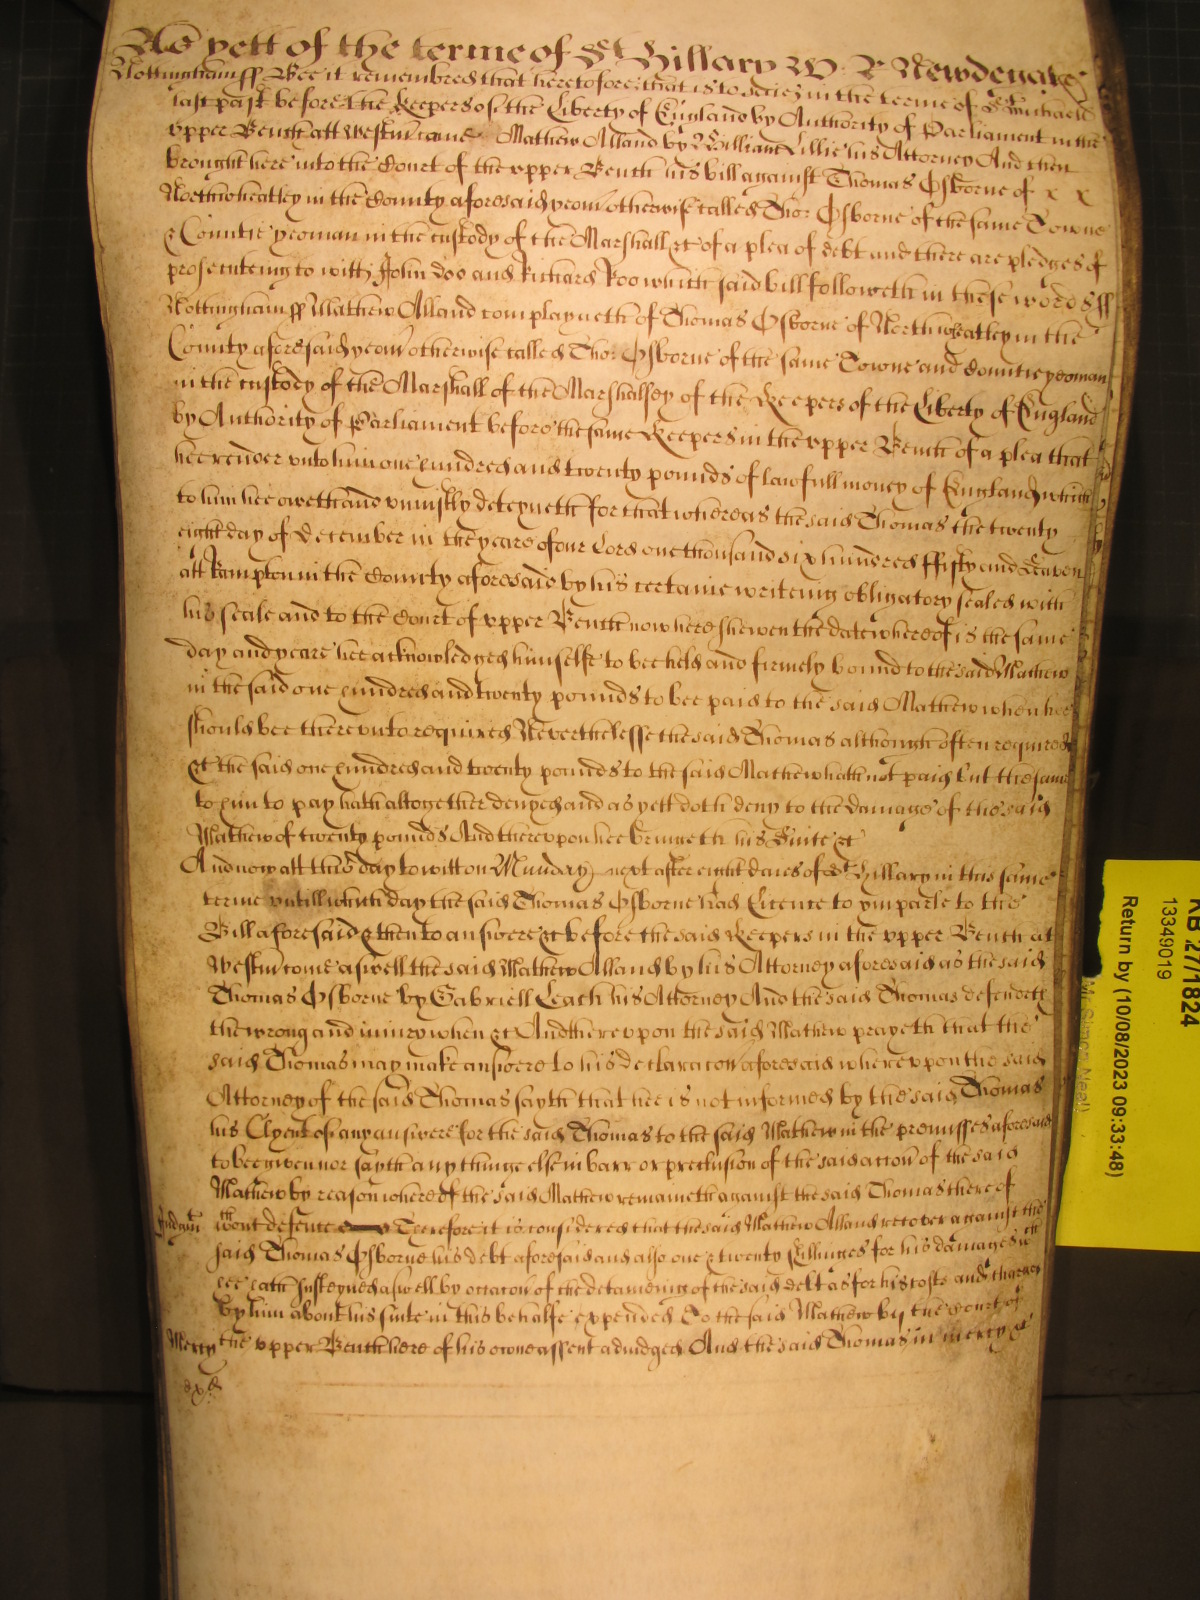 As yett of the terme of St Hillary W R Newdegate
Nottingham ss Bee it remembred that heretofore that is to say in the terme of St Michaell
last past before the Keepers of the Liberty of England by Authority of Parliament in the
upper Bench att Westm came Mathew Alland by William Lillie his Attorney And then
brought here into the Court of the upper Bench his bill against Thomas Osborne of x x
Northwheatley in the County aforesaid yeom otherwise called Tho: Osborne of the same Towne
& Countie yeoman in the custody of the Marshall &c of a plea of debt and there are pledges of
prosecuteing to witt John Doo and Richard Roo which said bill followeth in these words ss
Nottingham ss Mathew Alland complayneth of Thomas Osborne of Northwheatley in the
County aforesaid yeom otherwise called Tho: Osborne of the same Towne and Countie yeoman
in the custody of the Marshall of the Marshalsey of the Keepers of the Liberty of England
by Authority of Parliament before the same Keepers in the upper Bench of a plea that
hee render unto him one hundred and twenty pounds of lawfull money of England which
to him hee oweth and uniustly deteyneth for that whereas the said Thomas the twenty
eight day of December in the yeare of our Lord one thousand six hundred ffifty and
att Kampton in the County aforesaid by his certaine writeing obligatory sealed with
his seale and to the Court of upper Bench now here shewen the date whereof is the same
day and yeare hee acknowledged himselfe to bee held and firmely bound to the said Mathew
in the said one hundred and twenty pounds to bee paid to the said Mathew when hee
should bee thereunto required Neverthelesse the said Thomas although often required
&c the said one hundred and twenty pounds to the said Mathew hath not paid but the same
to him to pay hath altogether denyed and as yett doth deny to the damage of the said
Mathew of twenty pounds And thereupon hee bringeth his Suite &c
And now att this day to witt on Munday next after eight daies of St Hillary in this same
terme untill which day the said Thomas Osborne had Licence to imparle to the
Bill aforesaid & then to answere &c before the said Keepers in the upper Bench at
Westm come aswell the said Mathew Alland by his Attorney aforesaid as the said
Thomas Osborne by Gabriell Leach his Attorney And the said Thomas defendeth
the wrong and iniury when &c And thereupon the said Mathew prayeth that the
said Thomas may make answere to his declaracon aforesaid whereupon the said
Attorney of the said Thomas sayth that hee is not informed by the said Thomas
his Clyent of any answere for the said Thomas to the said Mathew in the premisses aforesaid
to bee given nor sayth any thinge else in barr or preclusion of the said accon of the said
Mathew by reason whereof the said Mathew remaineth against the said Thomas thereof
Judgmt
wthout defence Therefore it is considered that the said Mathew Alland recover against the
said Thomas Osborne his debt aforesaid and also one & twenty shillinges for his damages wch
hee hath susteyned aswell by occacon of the detaineing of the said debt as for his costs and charges
by him about his suite in this behalfe expended To the said Mathew by the Court of
Mercy
the upper Bench here of his owne assent adiudged And the said Thomas in mercy &c
KB 27/1824
13349019
Return by (10/08/2023 09:33:48)